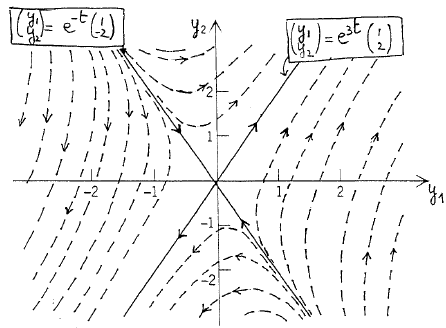 (y1 y2) = e^-t (1 -2)
y2
(y1 y2) = e^3t (1 2)
2
1
-2
-1
1
2
y1
-1
-2